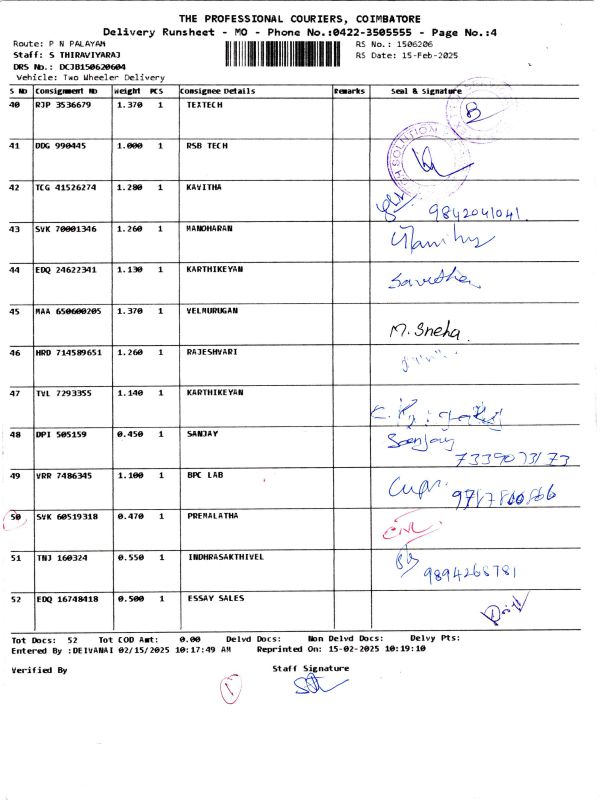 THE PROFESSIONAL COURIERS, COIMBATORE
Delivery Runsheet - MO - Phone No.:0422-3505555 - Page No.:4
Route: P N PALAYAM
RS No.: 1506206
Staff: S THIRAVIYARAJ
RS Date: 15-Feb-2025
DRS No.: DCJB150620604
Vehicle: Two Wheeler Delivery
S No Consignment No Weight PCS Consignee Details Remarks Seal & Signature
40 RJP 3536679 1.370 1 TEXTECH
41 DDG 990445 1.000 1 RSB TECH
42 TCG 41526274 1.280 1 KAVITHA
9842041041.
43 SVK 70001346 1.260 1 MANOHARAN
44 EDQ 24622341 1.130 1 KARTHIKEYAN
45 MAA 650600205 1.370 1 VELMURUGAN
M. Sneha
46 HRD 714589651 1.260 1 RAJESHVARI
47 TVL 7293355 1.140 1 KARTHIKEYAN
48 DPI 505159 0.450 1 SANJAY Sanjay
7339073173
49 VRR 7486345 1.100 1 BPC LAB
50 SVK 60519318 0.470 1 PREMALATHA CNL
51 TNJ 160324 0.550 1 INDHRASAKTHIVEL
9894268781
52 EDQ 16748418 0.500 1 ESSAY SALES
Tot Docs: 52 Tot COD Amt: 0.00 Delvd Docs: Non Delvd Docs: Delvy Pts:
Entered By :DEIVANAI 02/15/2025 10:17:49 AM Reprinted On: 15-02-2025 10:19:10
Verified By Staff Signature
1